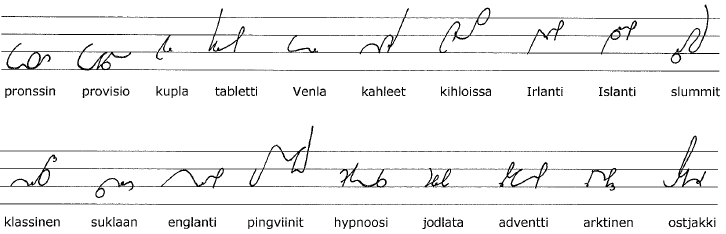 pronssin provisio kupla tabletti Venla kahleet kihloissa Irlanti Islanti slummit
klassinen suklaan englanti pingviinit hypnoosi jodlata adventti arktinen ostjakki